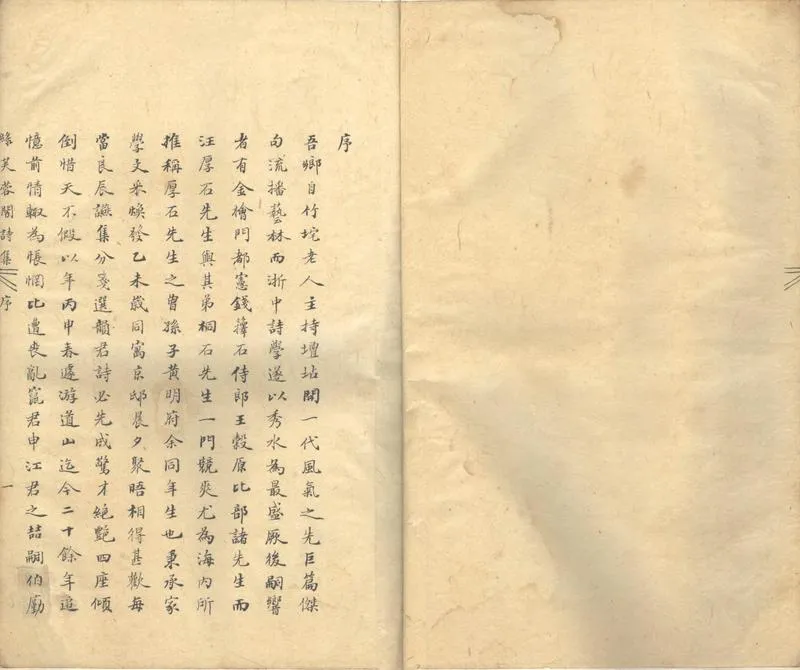 序
吾鄉自竹垞老人主持壇坫開一代風氣之先巨篇傑
句流播藝林而浙中詩學遂以秀水為最盛厥後嗣響
者有金檜門都憲錢蘀石侍郎王穀原比部諸先生而
汪厚石先生與其弟桐石先生一門競爽尤為海内所
推稱厚石先生之曾孫子黄明府余同年生也秉承家
學文采煥發乙未歲同寓京邸晨夕聚晤相得甚歡每
當良辰讌集分箋選韻君詩必先成驚才絶艶四座傾
倒惜天不假以年丙申春遽游道山迄今二十餘年追
憶前情輙為悵惘比遭喪亂竄居申江君之喆嗣伯勵
綠芙蓉閣詩集 序 一